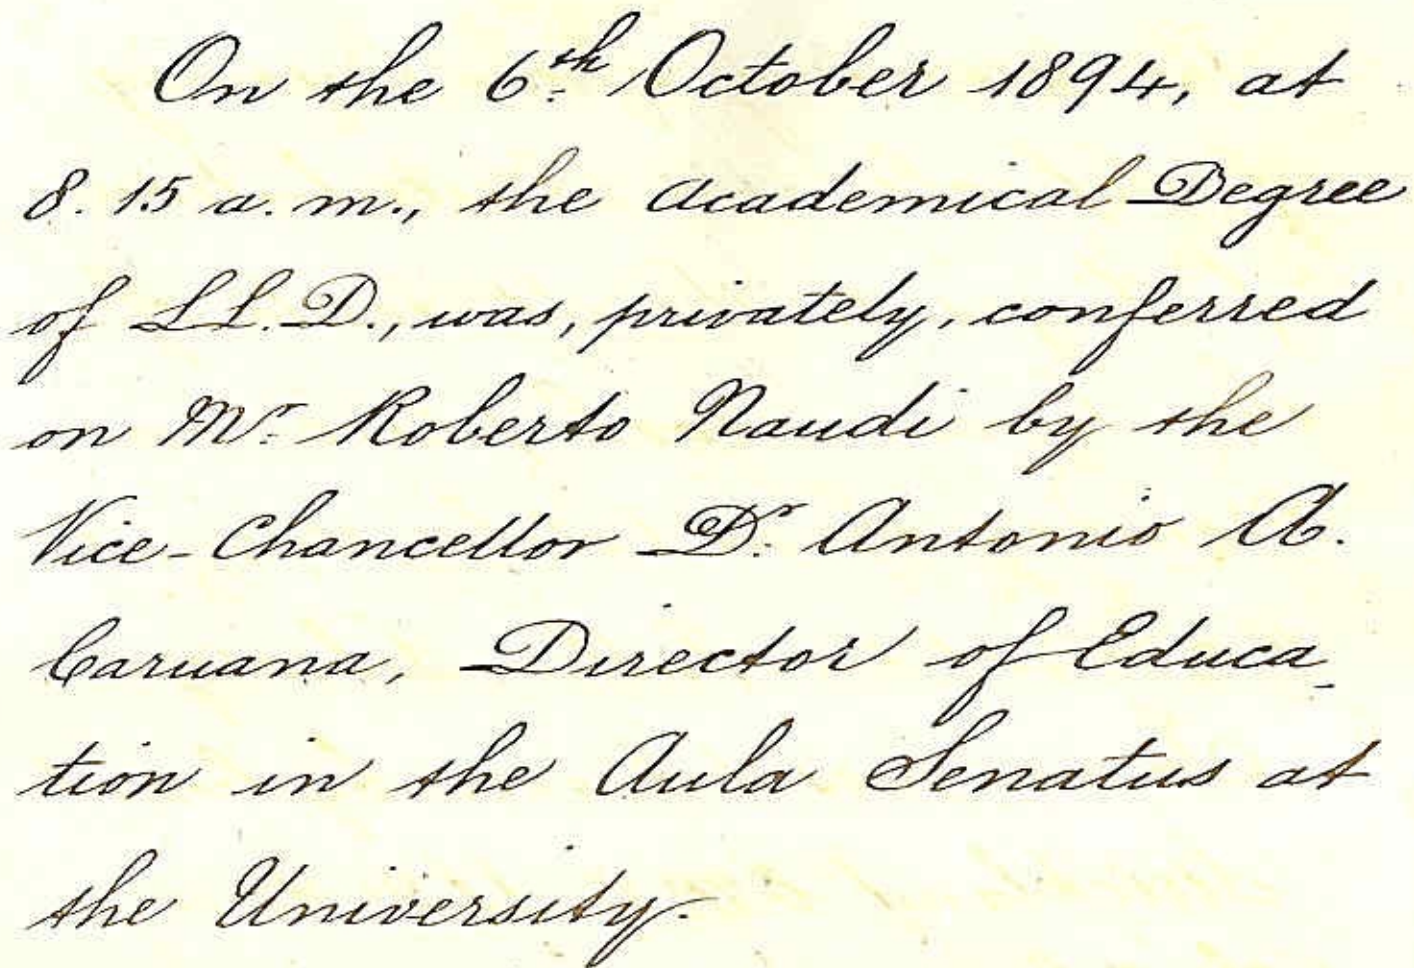 On the 6th October 1894, at
8. 15 a. m., the Academical Degree
of LL. D., was, privately, conferred
on Mr. Roberto Naudi by the
Vice-Chancellor Dr. Antonio A.
Caruana, Director of Educa-
tion in the Aula Senatus at
the University.